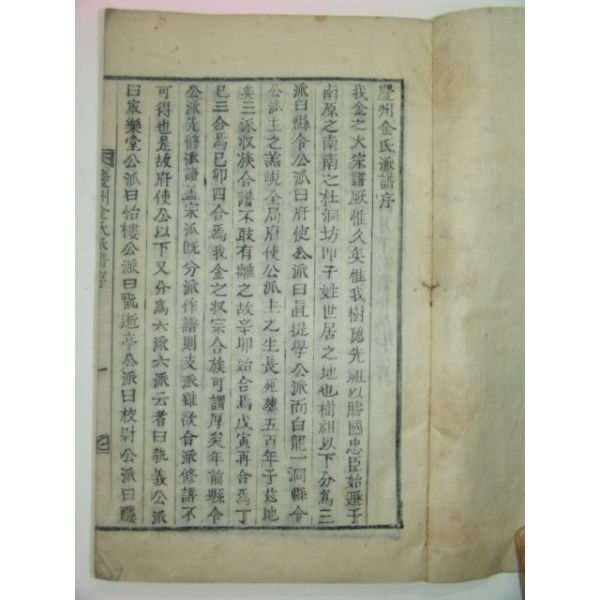 慶州金氏派譜序
我金之大宗譜厥惟久矣惟我樹隱先祖以勝國忠臣始遯于
南原之南南之杜洞坊卽子姓世居之地也樹祖以下分爲三
派曰縣令公派曰府使公派曰眞提學公派而白龍一洞縣令
公派主之蒿峴全局府使公派主之生長死葬五百年于玆地
矣三派収族合譜不敢有離之故辛卯始合焉戊寅再合焉丁
巳三合焉己卯四合焉我金之収宗合族可謂厚矣年前縣令
公派先修派譜盖宗派旣分派作譜則支派雖欲合派修譜不
可得也是故府使公以下又分爲六派六派云者曰執義公派
曰哀樂堂公派曰怡樓公派曰逝亭公派曰校尉公派曰
慶州金氏派譜序